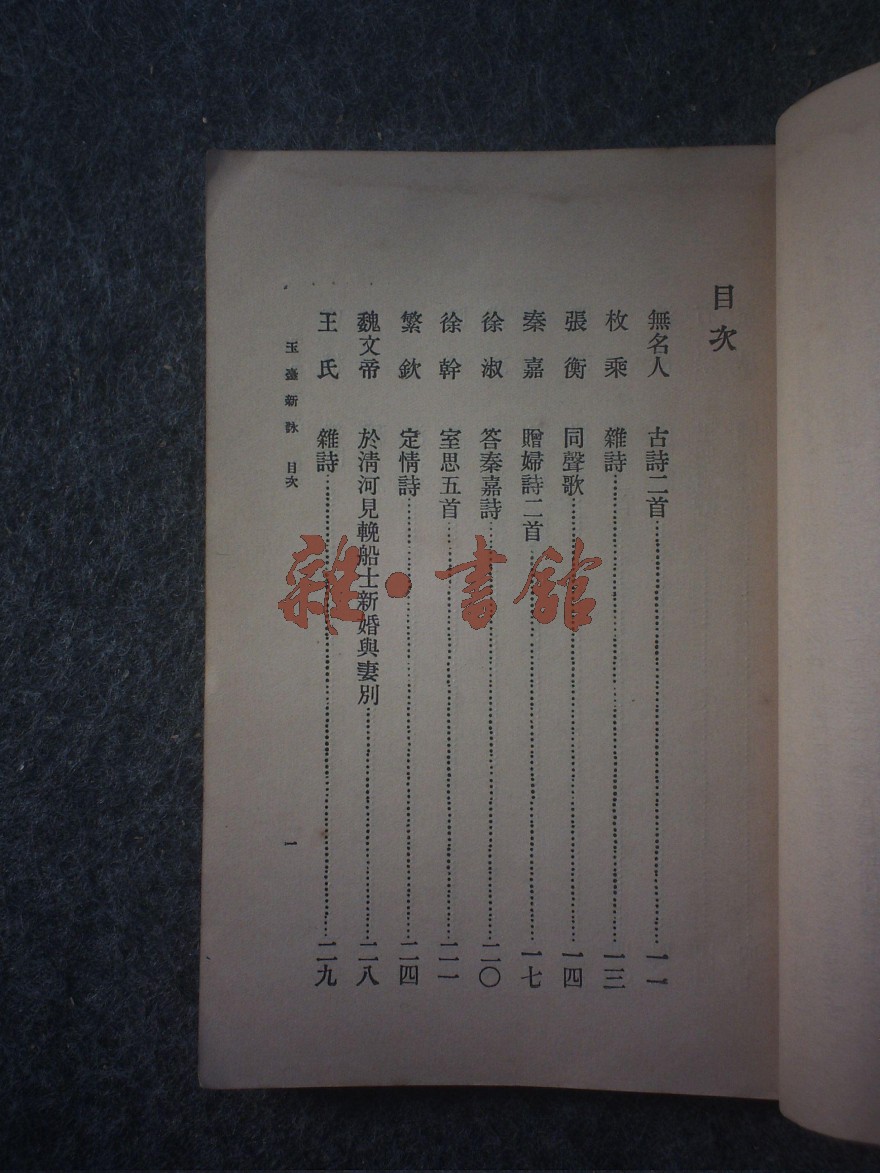 目次
無名人 古詩二首 一一
枚乘 雜詩 一三
張衡 同聲歌 一四
秦嘉 贈婦詩二首 一七
徐淑 答秦嘉詩 二〇
徐幹 室思五首 二一
繁欽 定情詩 二四
魏文帝 於清河見輓船士新婚與妻別 二八
王氏 雜詩 二九
玉臺新詠 目次 一
雜·書館